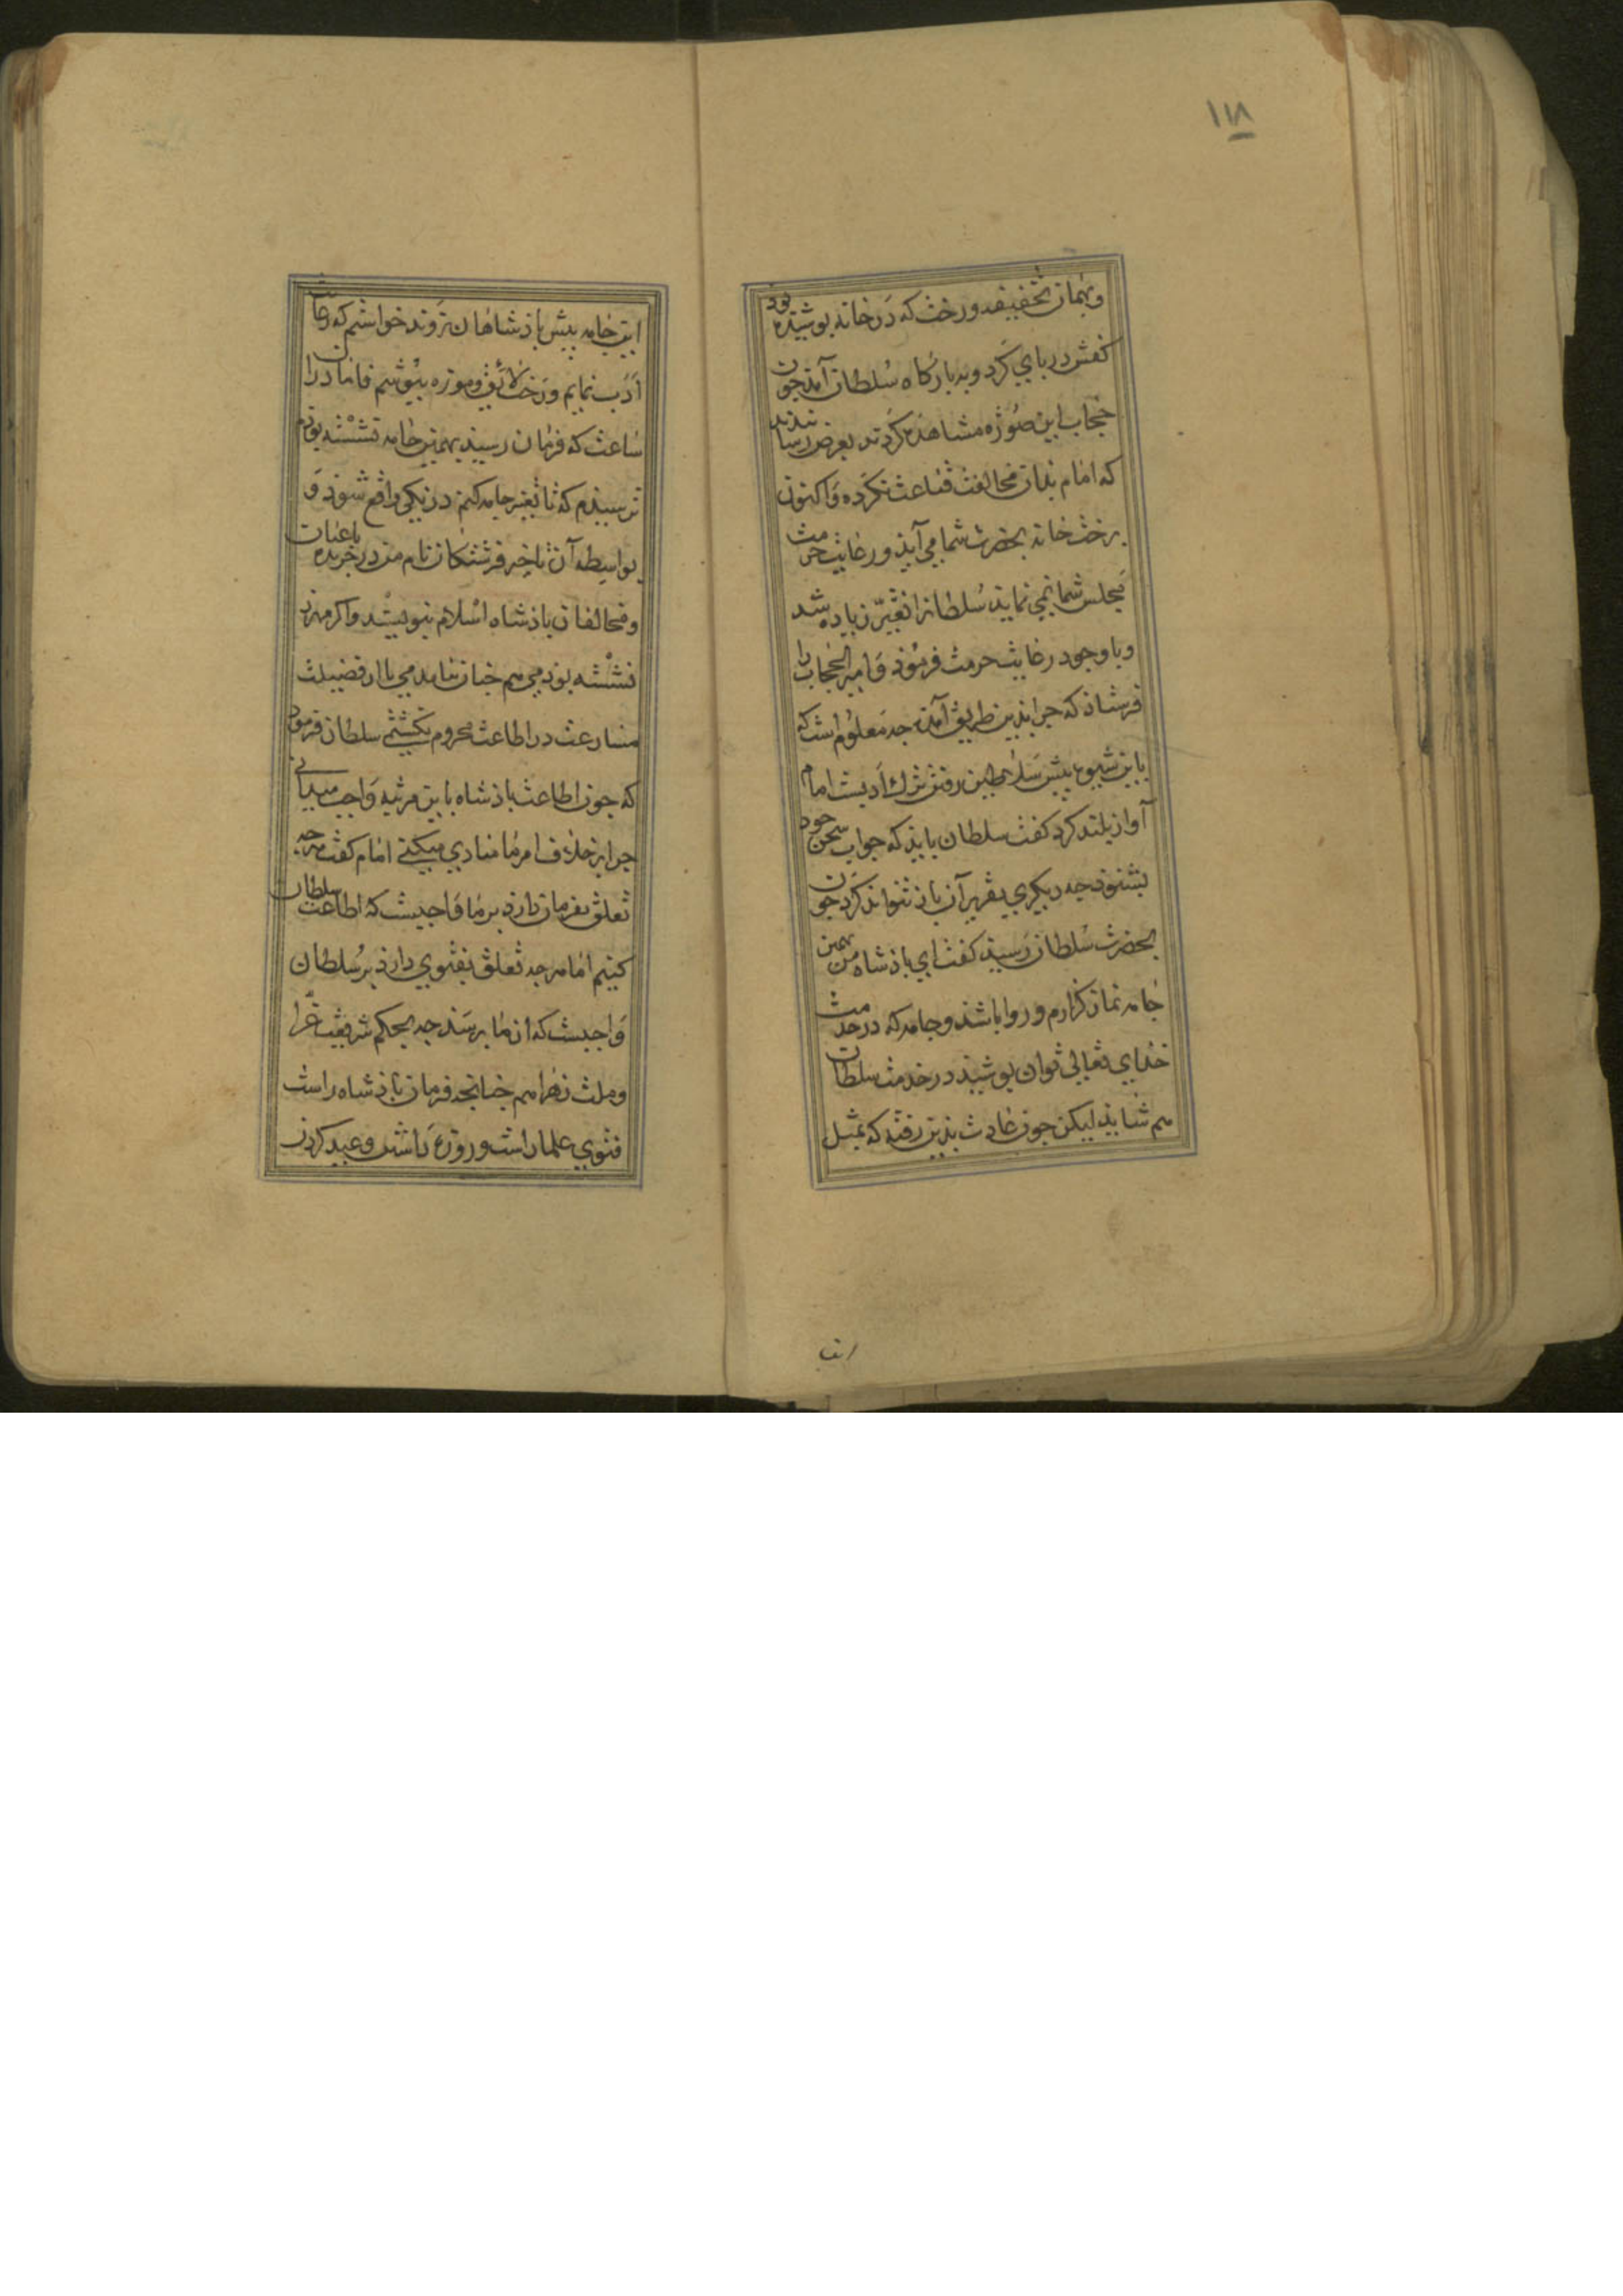 ١١٨
وبهمان تخفیفه ورخت که در خانه پوشیذه بوذ
کفش در پای کرد وبه بارکاه سلطان آمذ جون
حجاب این صورة مشاهده کردند بعرض رسانیذند
که امام بذان مخالفت قناعت نکرده واکنون
برخت خانه بحضرت شما می آیذ ورعایت حرمت
مجلس شما نمی نمایذ سلطانرا تغیّر زیاده شد
وباوجود رعایت حرمت فرموذ وامیر الحجاب را
فرستاذ که جرا بذین طریق آمذه جه معلوم است که
باین شیوه پیش سلاطین رفتن ترک ادبست امام
آواز بلند کرد کفت سلطان بایذ که جواب سخن خود
بشنوذ جه دیکری بتقریر آن باذ نتواند کرد جون
بحضرت سلطان رسیذ کفت ای باذشاه من بهمین
جامه نماز کزارم وروا باشذ وجامه که در خدمت
خذای تعالی توان پوشیذ در خدمت سلطان
هم شایذ لیکن جون عادت بذین رفته که بمثل
این
این جامه پیش باذشاهان نروند خواستم که رعایت
ادب نمایم ورخت لائق وموزه بپوشم فاما دران
ساعت که فرمان رسیذ بهمین جامه نشسته بوذم
ترسیذم که تا تغییر جامه کنم درنکی واقع شوذ و
بواسطه آن تاخیر فرشتکان نام من در جریده باغیان
ومخالفان باذشاه اسلام بنویسند واکر برهنه
نشسته بوذمی هم جنان بیامدمی تا از فضیلت
مسارعت در اطاعت محروم نکشتمی سلطان فرموذ
که جون اطاعت باذشاه باین مرتبه واجب میدانی
جرا بر خلاف امر ما منادی میکنی امام کفت هرجه
تعلق بفرمان دارد بر ما واجبست که اطاعت سلطان
کنیم اما هرجه تعلق بفتوی دارد بر سلطان
واجبست که از ما برسد جه بحکم شریعت غرا
وملت زهرا هم جنانجه فرمان باذشاه راست
فتوی علما راست وروزه داشتن وعید کردن